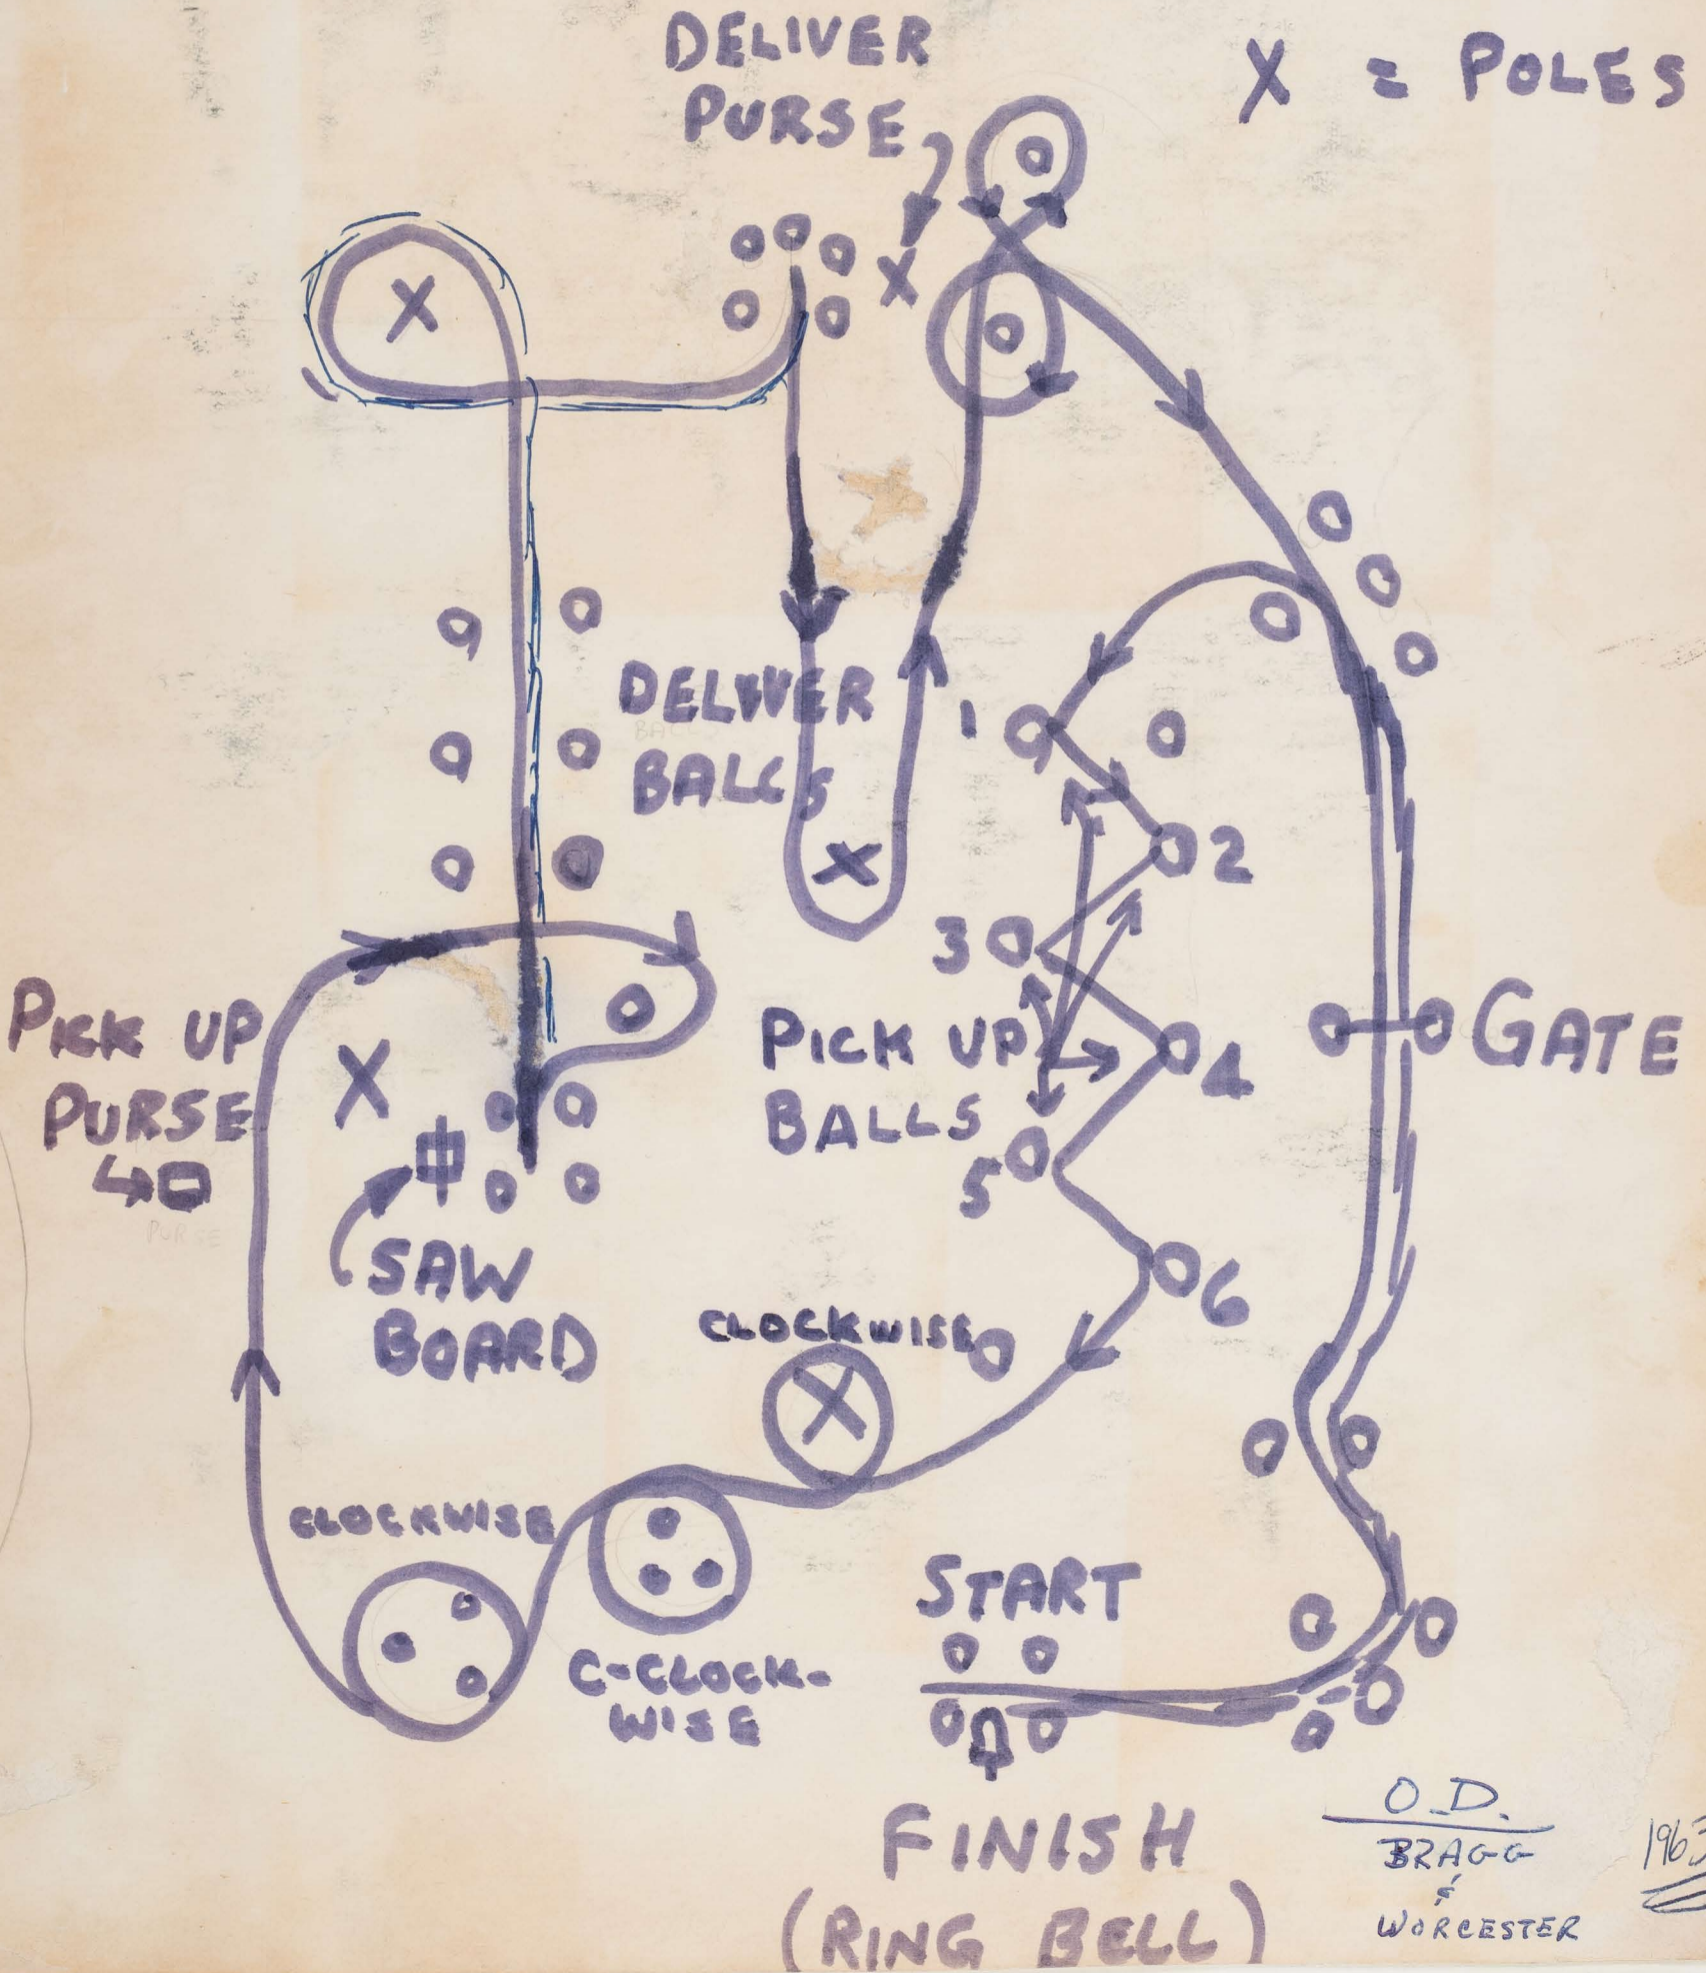 DELIVER
PURSE
X = POLES
X
X
DELIVER
BALLS
BALLS
1
2
X
3
PICK UP
PURSE
PURSE
X
PICK UP
BALLS
4
GATE
5
SAW
BOARD
6
CLOCKWISE
X
CLOCKWISE
C-CLOCK-
WISE
START
FINISH
(RING BELL)
O.D.
BRAGG
&
WORCESTER
1963